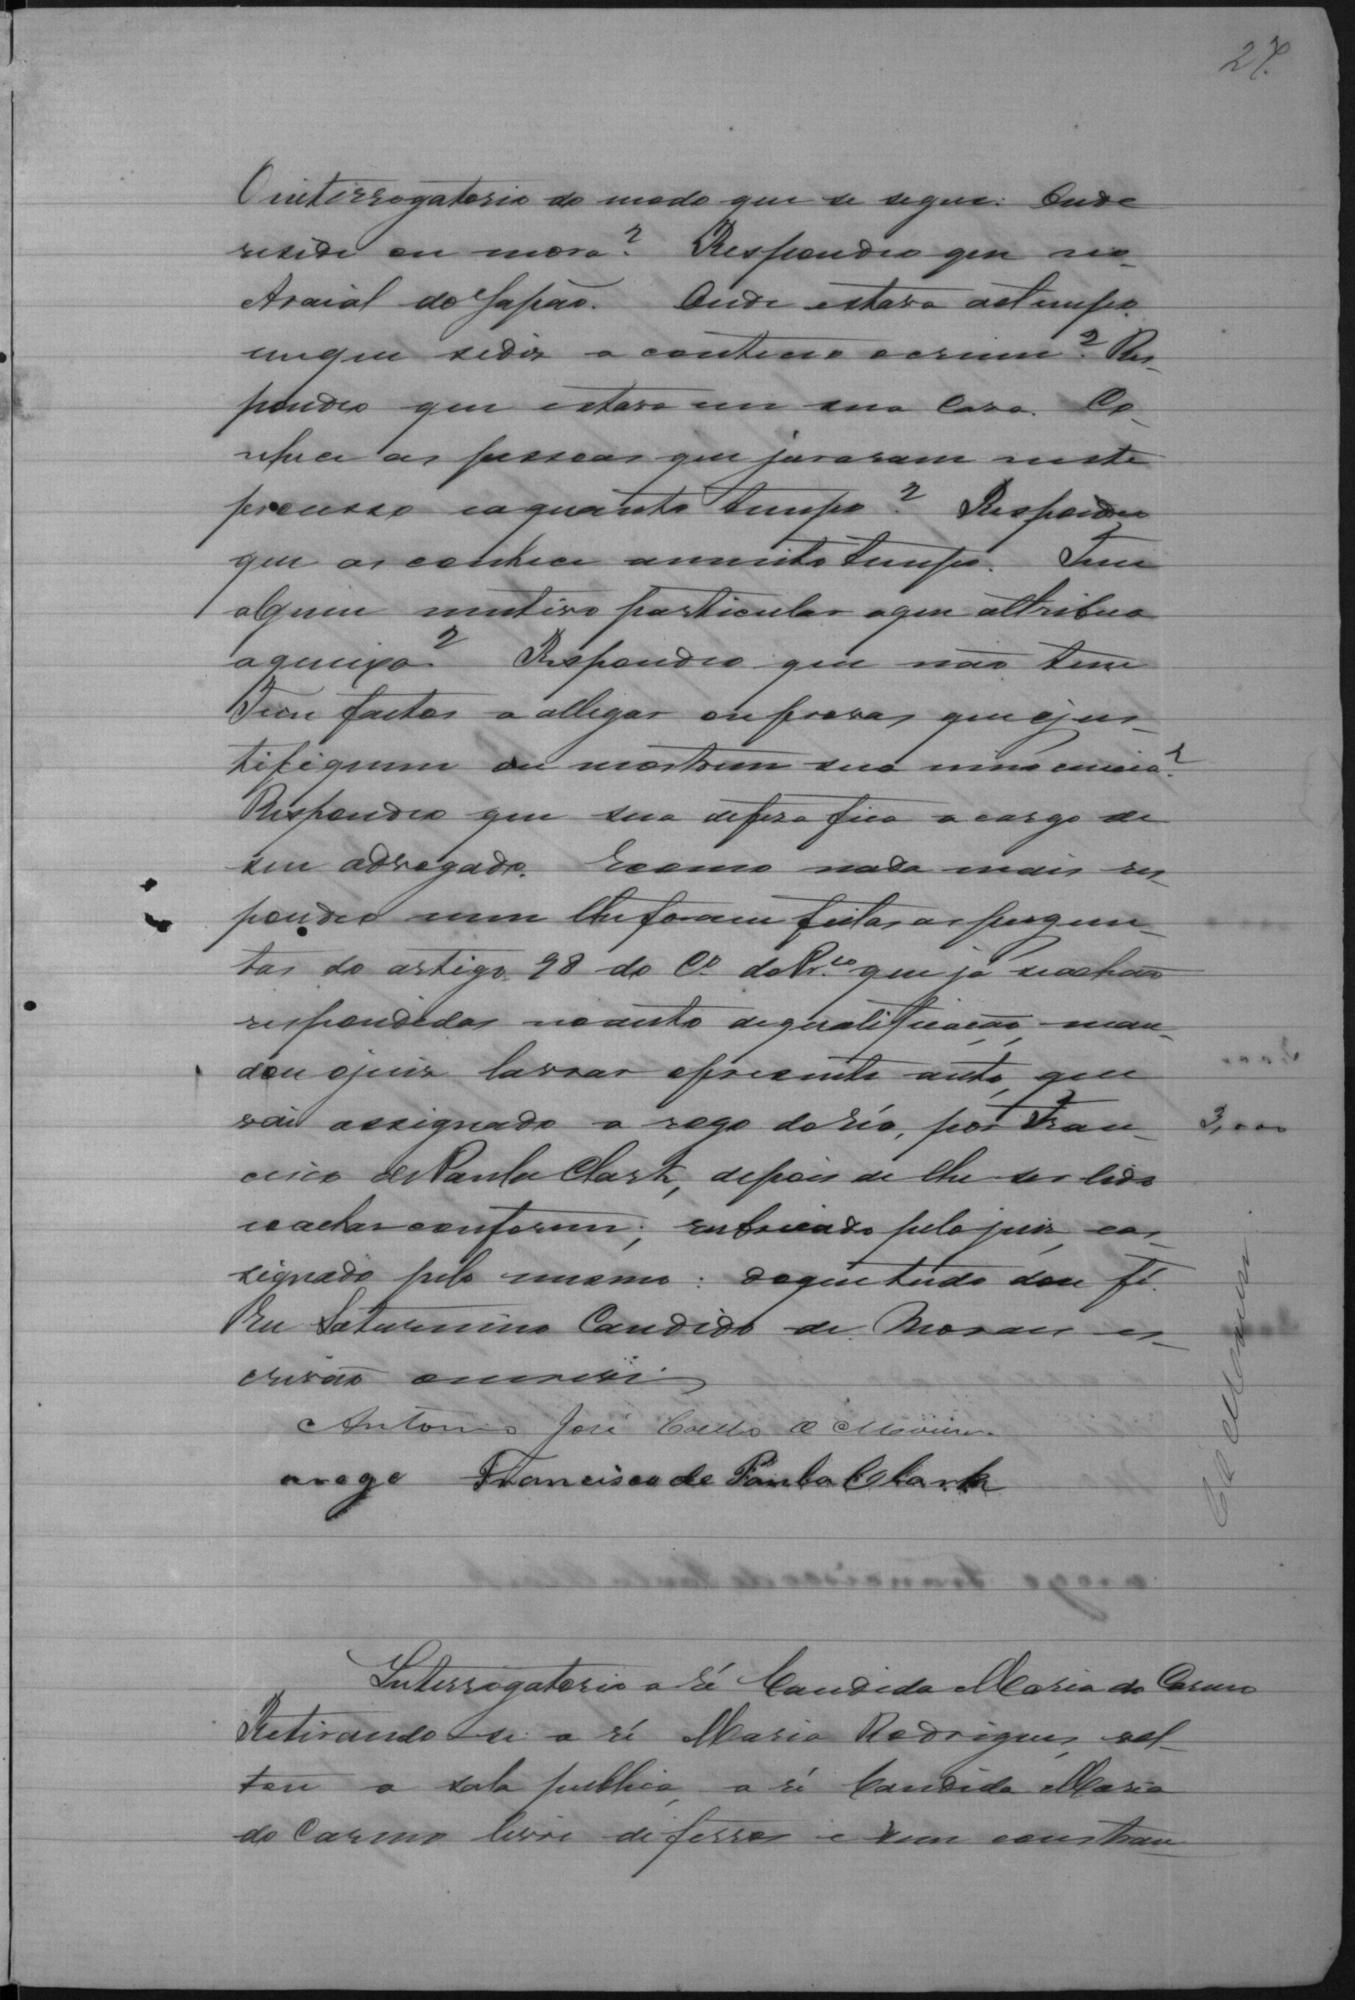 27.
O interrogatorio do modo que se segue: Onde
reside ou mora? Respondeo que no
Araial do Japão. Onde estava ao tempo
em que se diz a conteceo o crime? Res-
pondeo que estava em sua Casa. Co-
nhece as pessoas que juraram neste
processo e aquanto tempo? Respondeu
que os conhece a muito tempo. Tem
alguem mutivo particular a que attribua
a queixa? Respondeo que não tem
Tem factos a allegar ou provas que o jus-
tifiquem ou mostrem sua innocencia?
Respondeo que sua defeza fica a cargo de
seu advogado. E como nada mais res-
pondeo nem lhe foram feitas as pergun-
tas do artigo 98 do Co. do Pr.co que já se achão
respondidas no auto de qualificação, man-
dou o juiz lavrar o presente auto, que
vai assignado a rogo da ré, por Fran-
cisco de Paula Clark, depois de lhe ser lido
e achar conforme; rubricado pelo juiz, e as-
signado pelo mesmo: do que tudo dou fé.
Eu Saturnino Candido de Moraes es-
crivão o escrevi
3,000
Antonio José Coelho
arogo Francisco de Paula Clark
Interrogatorio a ré Candida Maria do Carmo
Retirando-se a ré Maria Rodrigues, vol-
tou a sala publica, a ré Candida Maria
do Carmo livre de ferros e sem constran